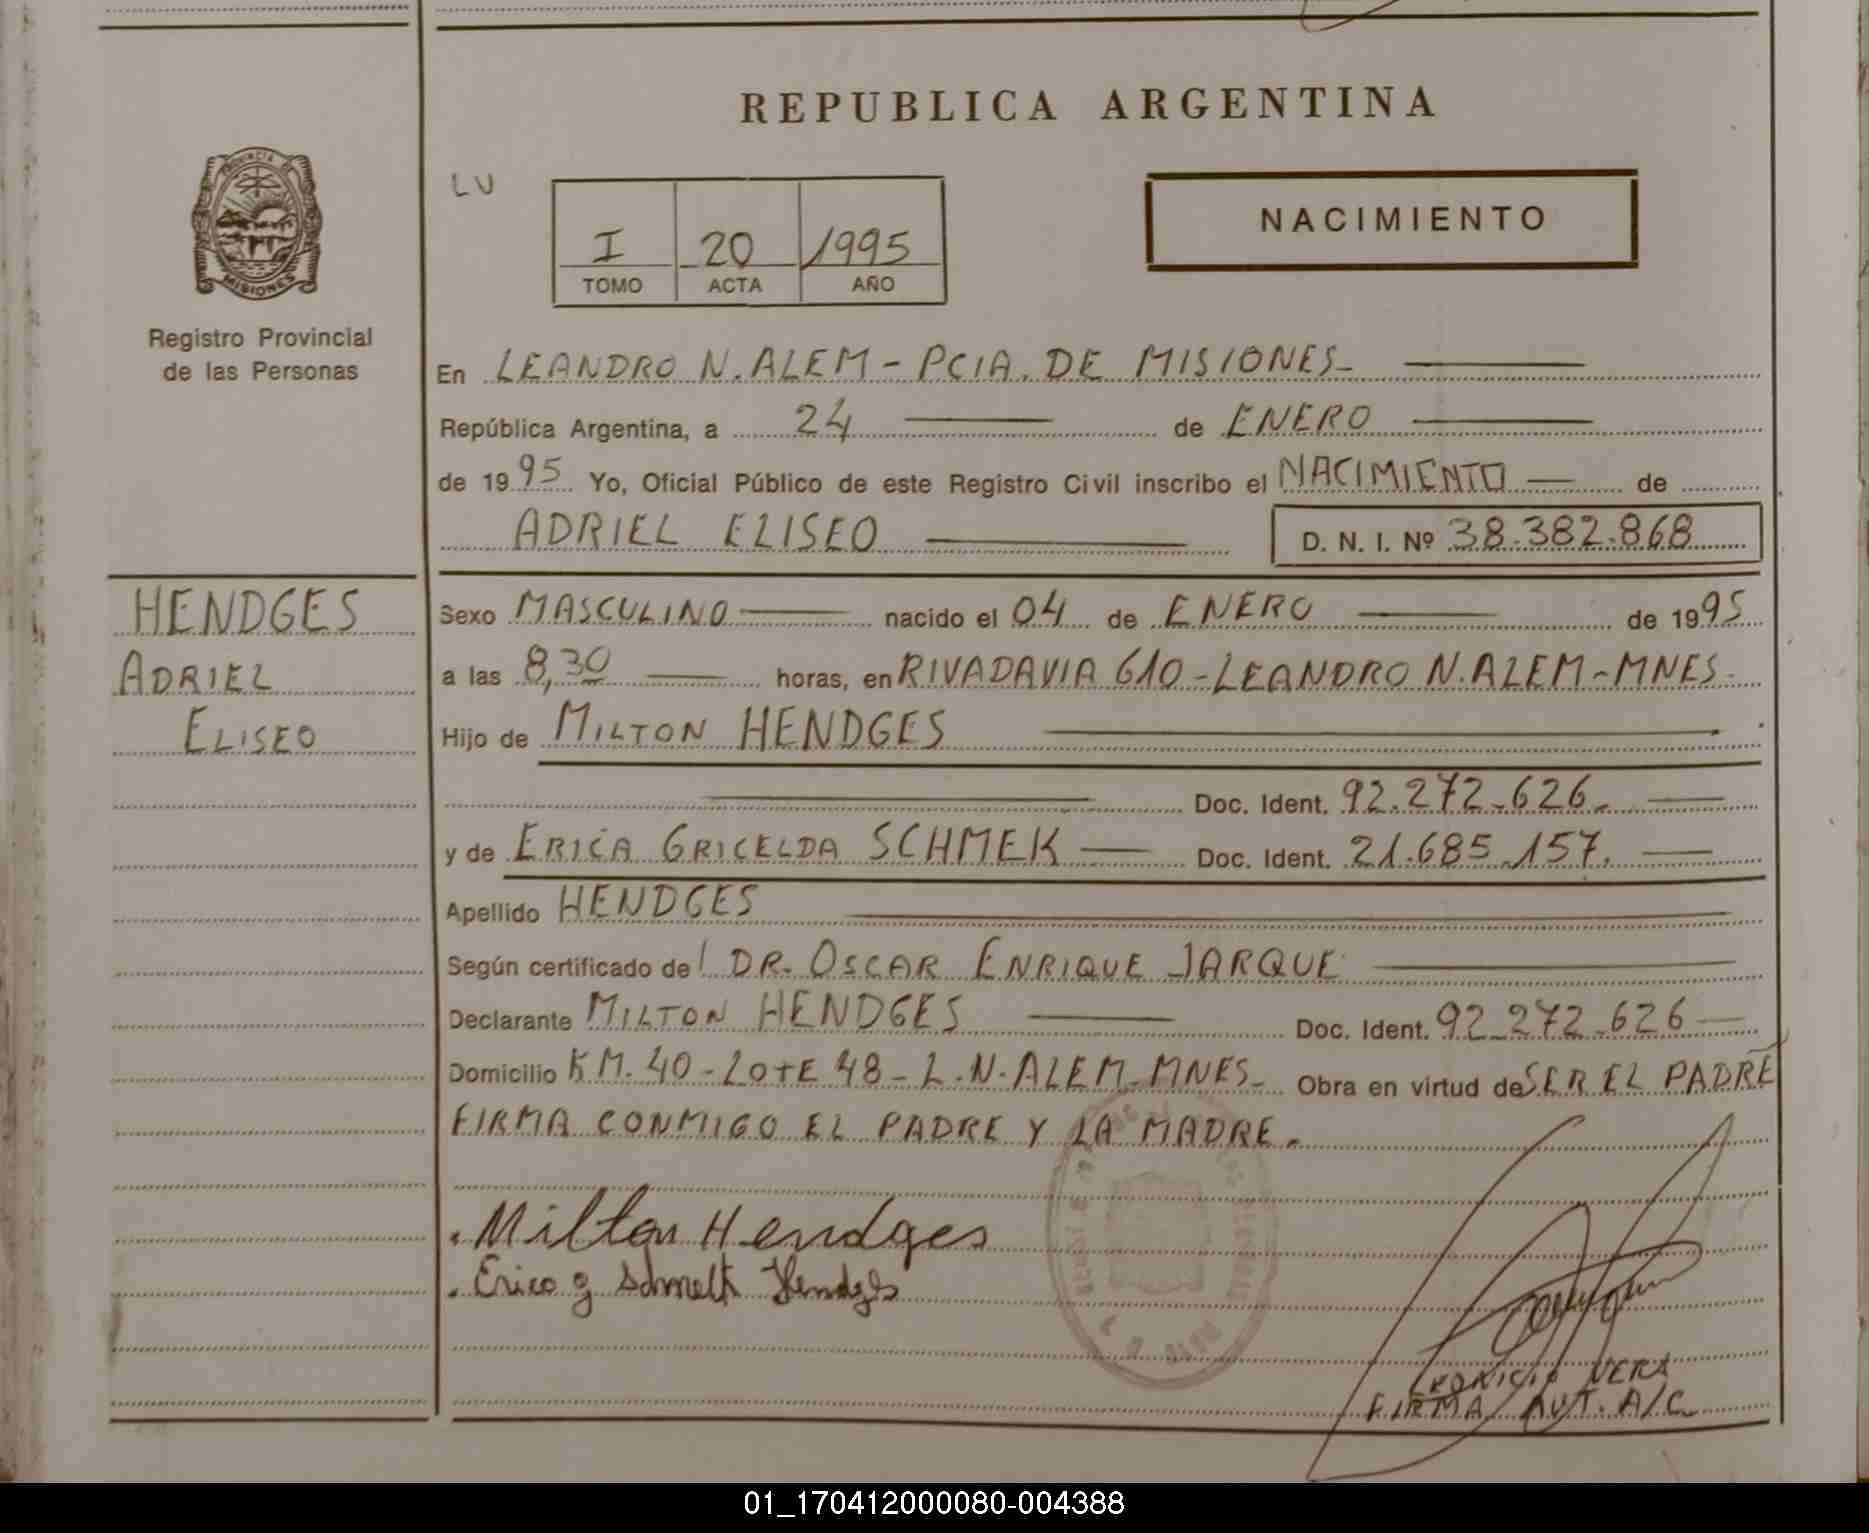 REPUBLICA ARGENTINA
PROVINCIA DE
MISIONES
Registro Provincial
de las Personas
LU
NACIMIENTO
I 20 1995
TOMO ACTA AÑO
En LEANDRO N. ALEM - PCIA. DE MISIONES-
República Argentina, a 24 de ENERO
de 1995 Yo, Oficial Público de este Registro Civil inscribo el NACIMIENTO de
ADRIEL ELISEO D. N. I. Nº 38.382.868
HENDGES
ADRIEL
ELISEO
Sexo MASCULINO nacido el 04 de ENERO de 1995
a las 8,30 horas, en RIVADAVIA 610 - LEANDRO N. ALEM - MNES-
Hijo de MILTON HENDGES
Doc. Ident. 92.272.626.
y de ERICA GRICELDA SCHMEK Doc. Ident. 21.685.157.
Apellido HENDGES
Según certificado del DR. OSCAR ENRIQUE JARQUE
Declarante MILTON HENDGES Doc. Ident. 92.272.626
Domicilio KM. 40 - LOTE 48 - L. N. ALEM - MNES- Obra en virtud de SER EL PADRE
FIRMA CONMIGO EL PADRE Y LA MADRE.
Milton Hendges
Erica g Schmek Hendges
VERA
FIRMA AUT. A/C
01_170412000080-004388